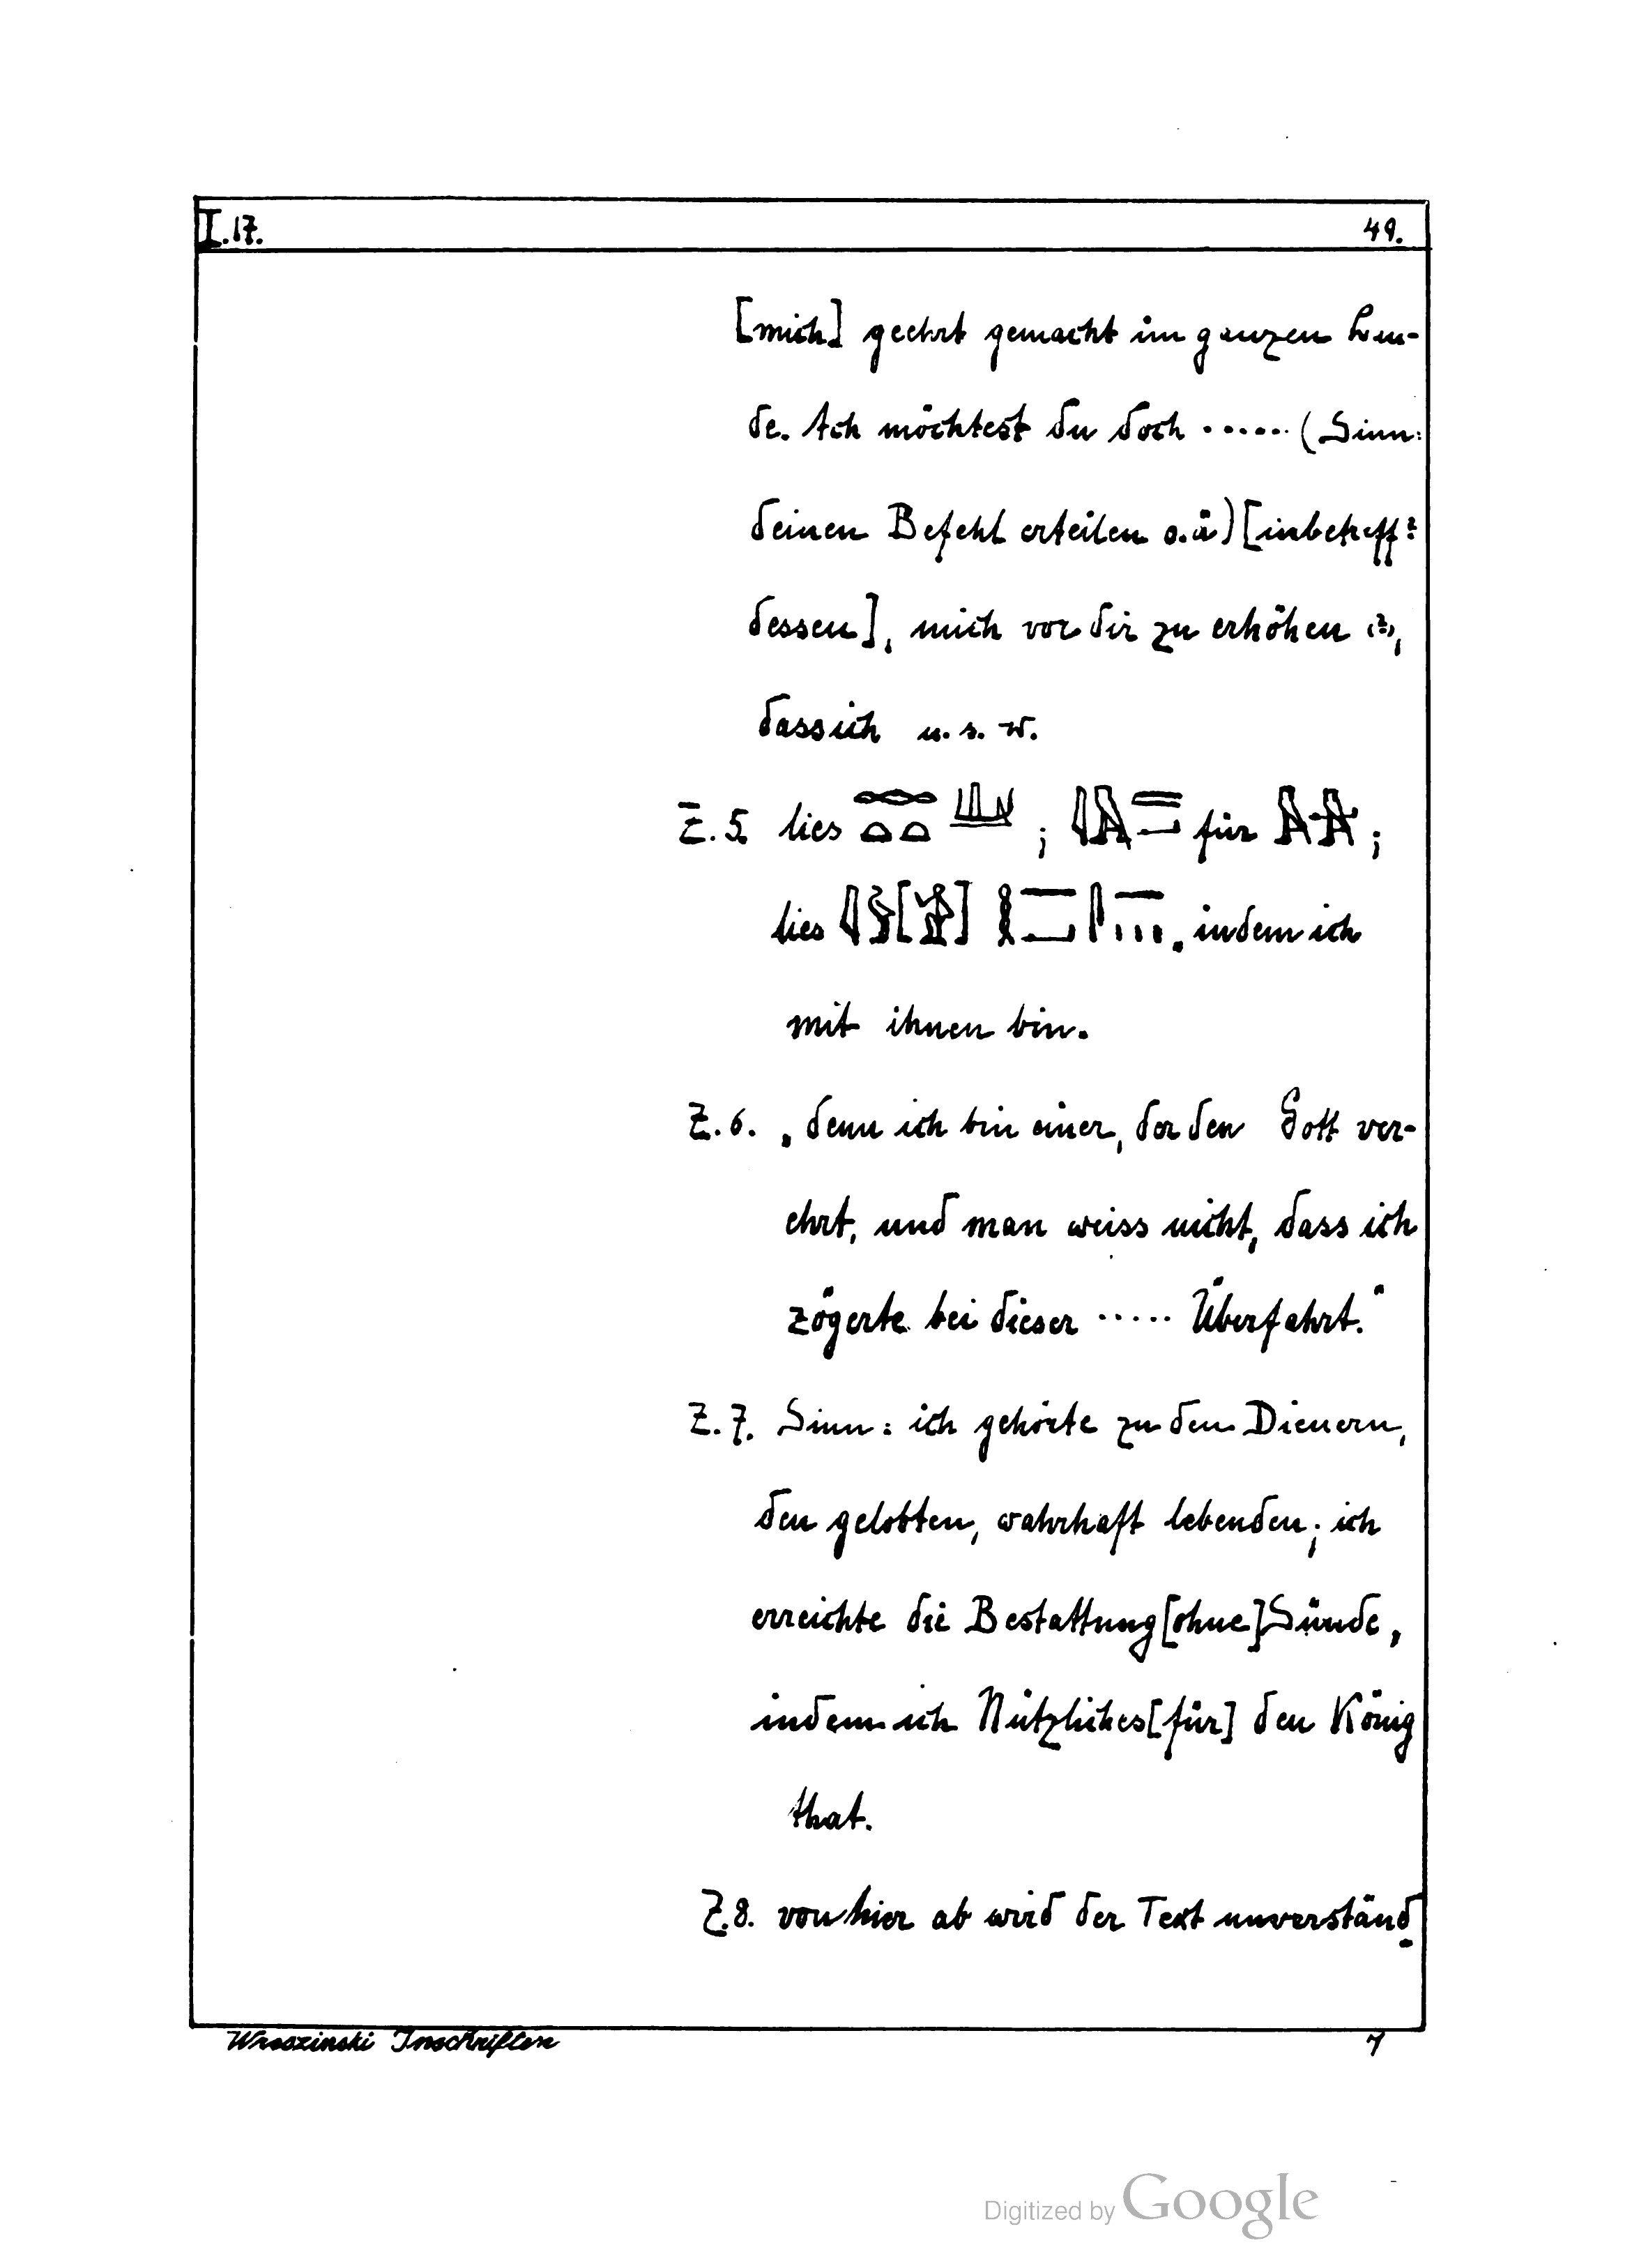 I.17. 49.
[mich] geehrt gemacht im ganzen Lan-
de. Ach möchtest du doch ...... (Sinn:
deinen Befehl erteilen o.ä) [inbetreff?
dessen], mich vor dir zu erhöhen (?),
dass ich u. s. w.
Z. 5. lies ; für ;
lies „ indem ich
mit ihnen bin.
Z. 6. „ denn ich bin einer, der den Gott ver-
ehrt, und man weiss nicht, dass ich
zögerte bei dieser ..... Überfahrt.“
Z. 7. Sinn: ich gehörte zu den Dienern,
den gelobten, wahrhaft lebenden; ich
erreichte die Bestattung [ohne] Sünde,
indem ich Nützliches [für] den König
that.
Z. 8. von hier ab wird der Text unverständ-
Wreszinski Inschriften 7
Digitized by Google